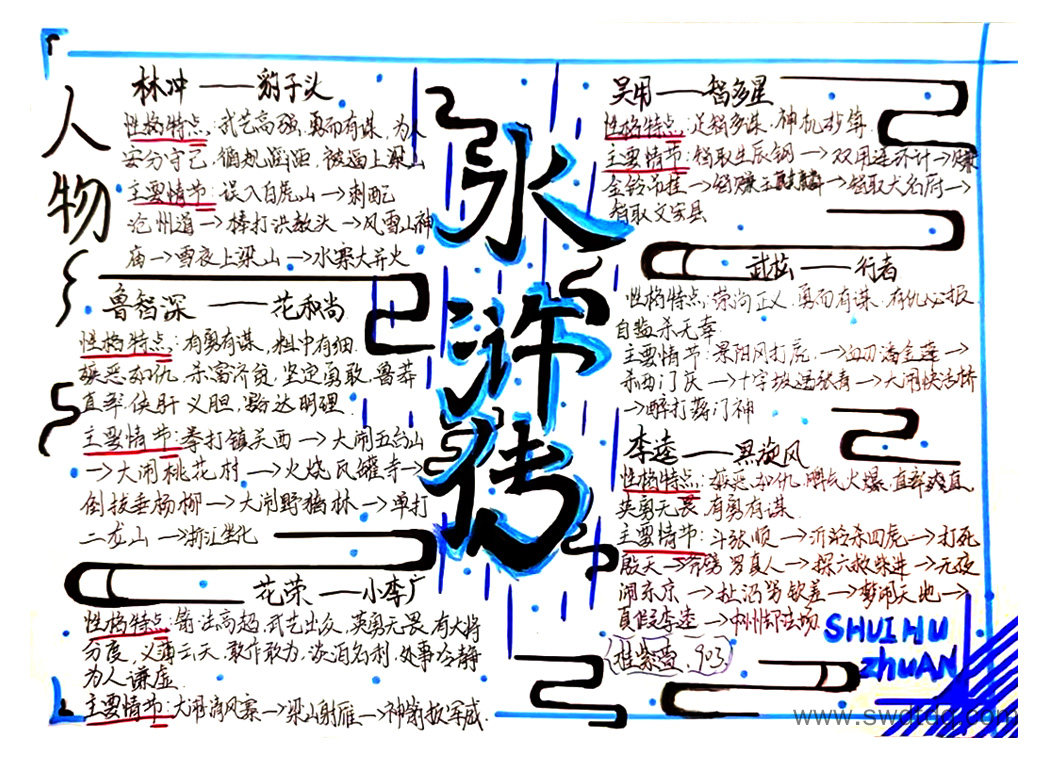 人物
林冲——豹子头
性格特点:武艺高强,勇而有谋,为人
安分守己,循规蹈距,被逼上梁山
主要情节:误入白虎山→刺配
沧州道→棒打洪教头→风雪山神
庙→雪夜上梁山→水寨大并火
鲁智深——花和尚
性格特点:有勇有谋,粗中有细
嫉恶如仇,杀富济贫,坚定勇敢,鲁莽
直率侠肝义胆,豁达明理.
主要情节:拳打镇关西→大闹五台山
→大闹桃花村→火烧瓦罐寺→
倒拔垂杨柳→大闹野猪林→单打
二龙山→浙江坐化
花荣——小李广
性格特点:箭法高超,武艺出众,英勇无畏,有大将
分度,义薄云天,敢作敢为,淡泊名利,处事冷静
为人谦虚.
主要情节:大闹清风寨→梁山射雁→神箭报军威.
水浒传
吴用——智多星
性格特点:足智多谋,神机妙算
主要情节:智取生辰钢→双用连环计→赚
金铃吊挂→智赚玉麒麟→智取大名府→
智取文安县
武松——行者
性格特点:崇尚正义,勇而有谋,有仇必报
自监杀无辜
主要情节:景阳冈打虎,→血刃潘金莲→
杀西门庆→十字坡遇张青→大闹快活桥
→醉打蒋门神
李逵——黑旋风
性格特点:嫉恶如仇,脾气火爆,直率爽直,
英勇无畏,有勇有谋.
主要情节:斗张顺→沂岭杀四虎→打死
殷天→斧劈罗真人→探穴救柴进→元夜
闹东京→扯诏骂钦差→梦闹天地→
真假李逵→
903
SHUIHU
zhuAN
www.swdtdq.com